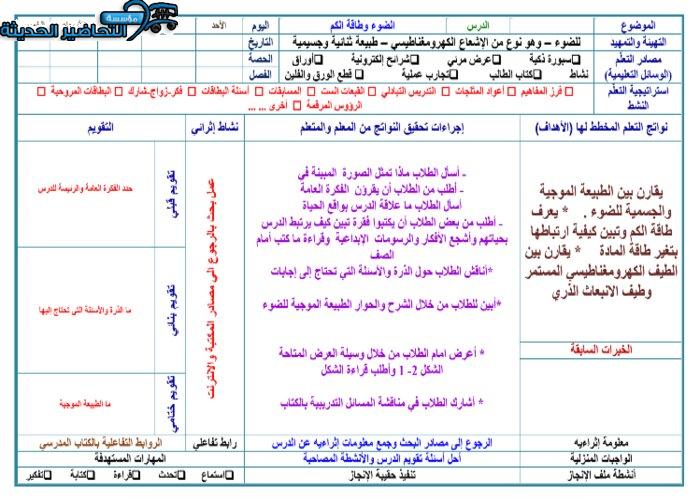 مؤسسة
التحاضير الحديثة
الموضوع
الدرس
الضوء وطاقة الكم
اليوم
الأحد
التهيئة والتمهيد
للضوء – وهو نوع من الإشعاع الكهرومغناطيسي – طبيعة ثنائية وجسيمية
التاريخ
مصادر التعلم
سبورة ذكية
عرض مرئي
شرائح إلكترونية
أوراق
الحصة
(الوسائل التعليمية)
نشاط
كتاب الطالب
تجارب عملية
قطع الورق والفلين
الفصل
استراتيجية التعلم
فرز المفاهيم
أعواد المثلجات
التدريس التبادلي
القبعات الست
المسابقات
أسئلة البطاقات
فكر-زواج-شارك
البطاقات المروحية
النشط
الرؤوس المرقمة
أخرى ... ...
نواتج التعلم المخطط لها (الأهداف)
إجراءات تحقيق النواتج من المعلم والمتعلم
نشاط إثرائي
التقويم
يقارن بين الطبيعة الموجية
والجسمية للضوء . * يعرف
طاقة الكم وتبين كيفية ارتباطها
بتغير طاقة المادة * يقارن بين
الطيف الكهرومغناطيسي المستمر
وطيف الانبعاث الذري
الخبرات السابقة
- أسأل الطلاب ماذا تمثل الصورة المبينة في
- أطلب من الطلاب أن يقرؤن الفكرة العامة
أسأل الطلاب ما علاقة الدرس بواقع الحياة
- أطلب من بعض الطلاب أن يكتبوا فقرة تبين كيف يرتبط الدرس
بحياتهم وأشجع الأفكار والرسومات الإبداعية وقراءة ما كتب أمام
الصف
*أناقش الطلاب حول الذرة والأسئلة التي تحتاج إلى إجابات
*أبين للطلاب من خلال الشرح والحوار الطبيعة الموجية للضوء
* أعرض امام الطلاب من خلال وسيلة العرض المتاحة
الشكل 2- 1 وأطلب قراءة الشكل
* أشارك الطلاب في مناقشة المسائل التدريبية بالكتاب
عمل بحث بالرجوع الي مصادر المكتبة والانترنت
تقويم قبلي
حدد الفكرة العامة والرئيسة للدرس
تقويم بنائي
ما الذرة والأسئلة التي تحتاج اليها
تقويم ختامي
ما الطبيعة الموجية
معلومة إثرائيه
الرجوع الى مصادر البحث وجمع معلومات إثراعيه عن الدرس
رابط تفاعلي
الروابط التفاعلية بالكتاب المدرسي
الواجبات المنزلية
أحل أسئلة تقويم الدرس والأنشطة المصاحبة
المهارات المستهدفة
أنشطة ملف الإنجاز
تنفيذ حقيبة الإنجاز
استماع
تحدث
قراءة
كتابة
تفكير